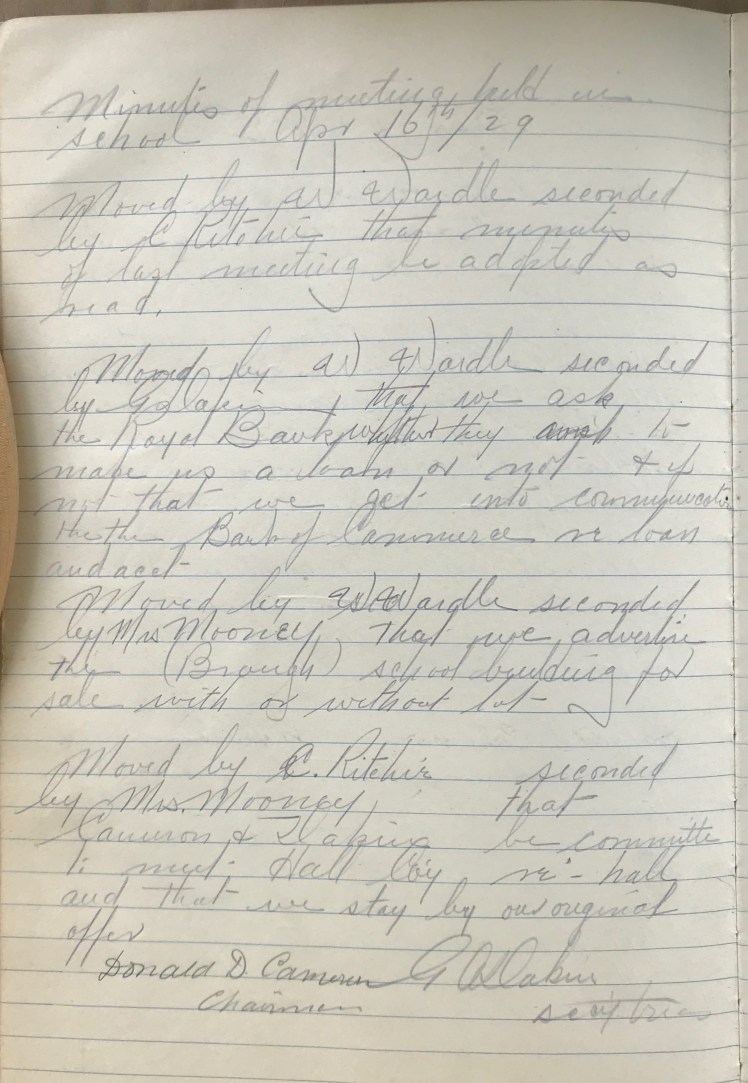 Minutes of meeting held in
school Apr 16th/29
Moved by W Wardle seconded
by C Ritchie that minutes
of last meeting be adopted as
read.
Moved by W Wardle seconded
by G Dakin that we ask
the Royal Bank whether they wish to
make us a loan or not & if
not that we get into communication
the the Bank of Commerce re loan
and acct
Moved by W Wardle seconded
by Mrs Mooney, that we advertise
the (Brough) school building for
sale with or without lot
Moved by C. Ritchie seconded
by Mrs. Mooney, that
Cameron & Dakin be committe
to meet Hall Coy re - hall
and that we stay by our original
offer
Donald D. Cameron G Dakin
Chairman secy treas